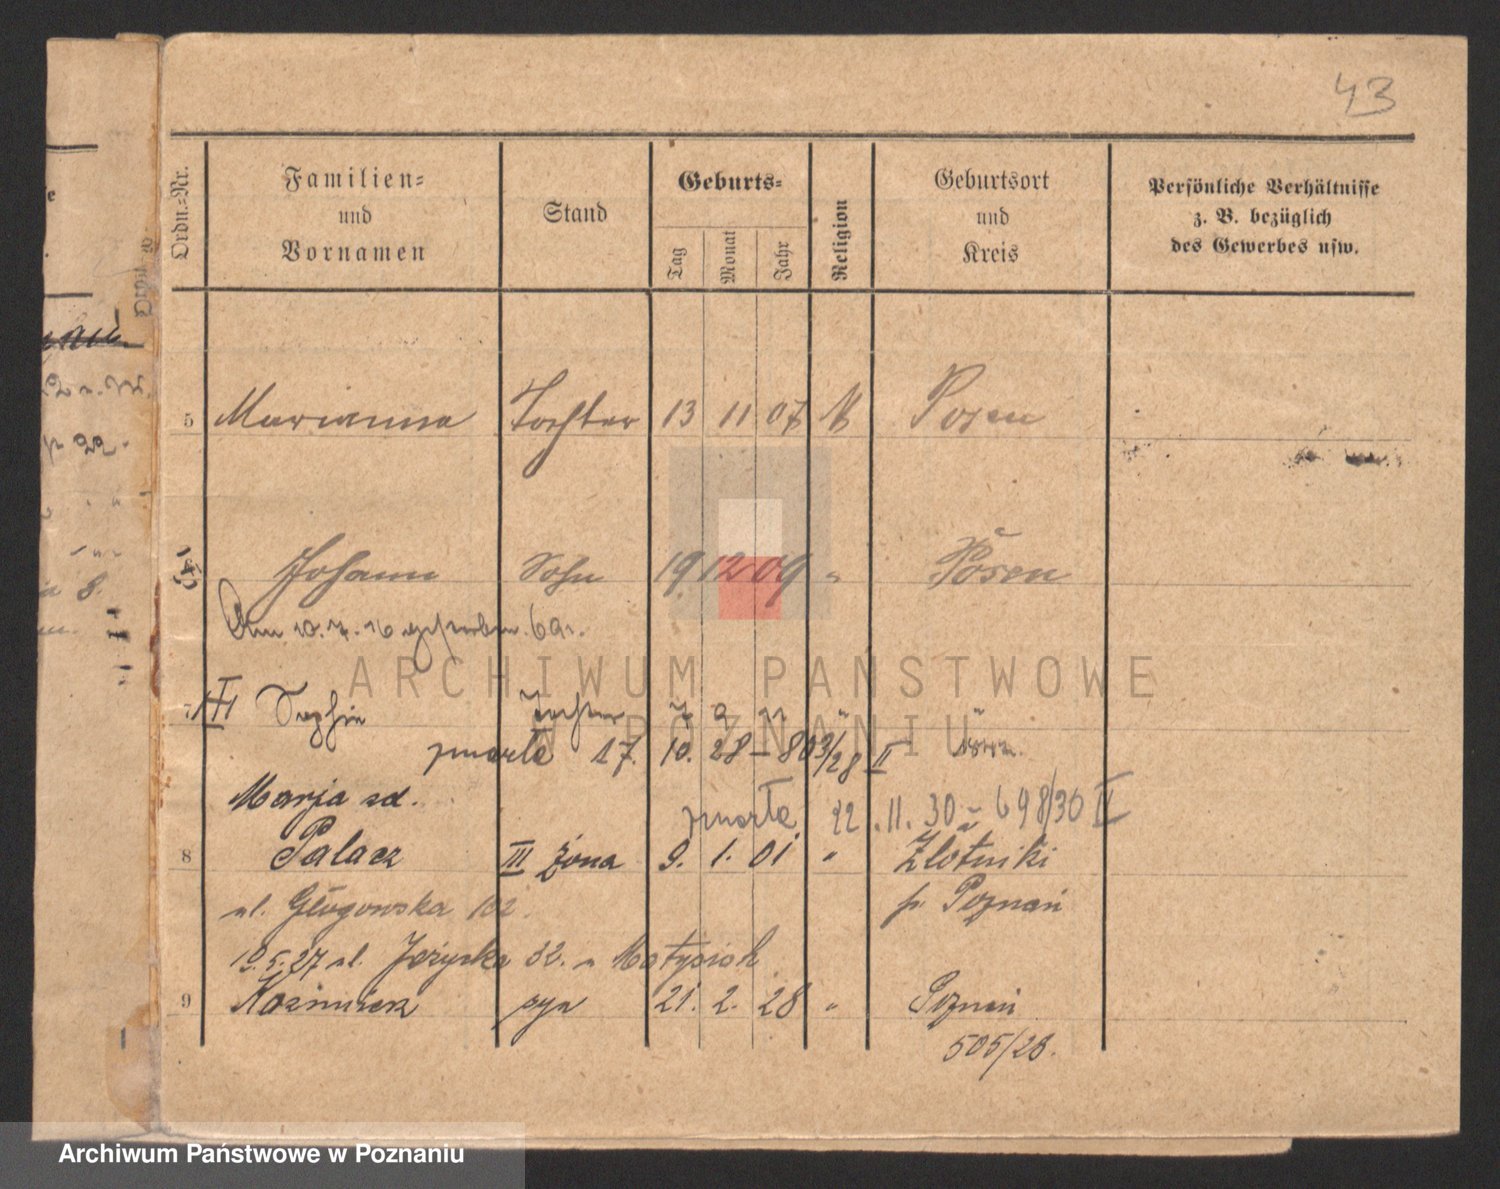 43
Ordn.-Nr.
Familien-
und
Vornamen
Stand
Geburts-
Tag
Monat
Jahr
Religion
Geburtsort
und
Kreis
Persönliche Verhältnisse
z. B. bezüglich
des Gewerbes usw.
5 Marianna Tochter 13 11 07 K Posen
Johann Sohn 19 12 09 " Posen
Am 10. 7. 16 gestorben.
ARCHIWUM PAŃSTWOWE
W POZNANIU
7 Sophie Tochter 7 9 11 " "
zmarła 17. 10. 28 – 803/28 II
Marja zd.
zmarła 22. 11. 30 – 698/30 II
8 Palacz III żona 9. 1. 01 " Złotniki
ul. Głogowska 102. p. Poznań
19.5.27 ul. Jeżycka 32. u Matysiak
9 Kazimierz syn 21. 2. 28 " Poznań
505/28.
Archiwum Państwowe w Poznaniu